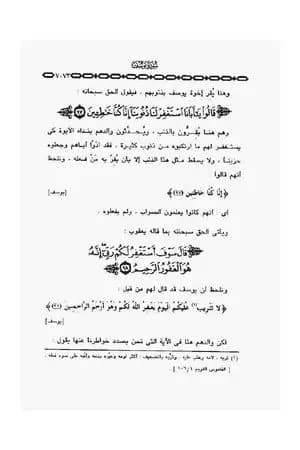 سورة يوسف
٧٠٧٣
وهنا يُقِر إخوة يوسف بذنوبهم ، فيقول الحق سبحانه :
﴿ قَالُوا يَا أَبَانَا اسْتَغْفِرْ لَنَا ذُنُوبَنَا إِنَّا كُنَّا خَاطِئِينَ ﴾
وهم هنا يُقِرون بالذنب ، ويُحدِّثون والدهم بنداء الأبوة كى
يستغفر لهم ما ارتكبوه من ذنوب كثيرة ، فقد آذوا أباهم وجعلوه
حزيناً ، ولا يسقط مثل هذا الذنب إلا بأن يُقِر به مَنْ فعله ، ونلحظ
أنهم قالوا
﴿ إِنَّا كُنَّا خَاطِئِينَ (٩٧) ﴾ [يوسف]
أى : أنهم كانوا يعلمون الصواب ، ولم يفعلوه .
ويأتى الحق سبحانه بما قاله يعقوب :
﴿ قَالَ سَوْفَ أَسْتَغْفِرُ لَكُمْ رَبِّي إِنَّهُ
هُوَ الْغَفُورُ الرَّحِيمُ ﴾
ونلحظ أن يوسف قد قال لهم من قبل :
﴿ لا تَثْرِيبَ (١) عَلَيْكُمُ الْيَوْمَ يَغْفِرُ اللَّهُ لَكُمْ وَهُوَ أَرْحَمُ الرَّاحِمِينَ (٩٢) ﴾
[يوسف]
لكن والدهم هنا فى الآية التى نحن بصدد خواطرنا عنها يقول :
(١) ثربه : لامه وعتب عليه . وثرَّبه بالتضعيف : أكثر لومه وعيَّره بذنبه وأنَّبه على سوء فعله .
[ القاموس القويم ١٠٦/١ ] .